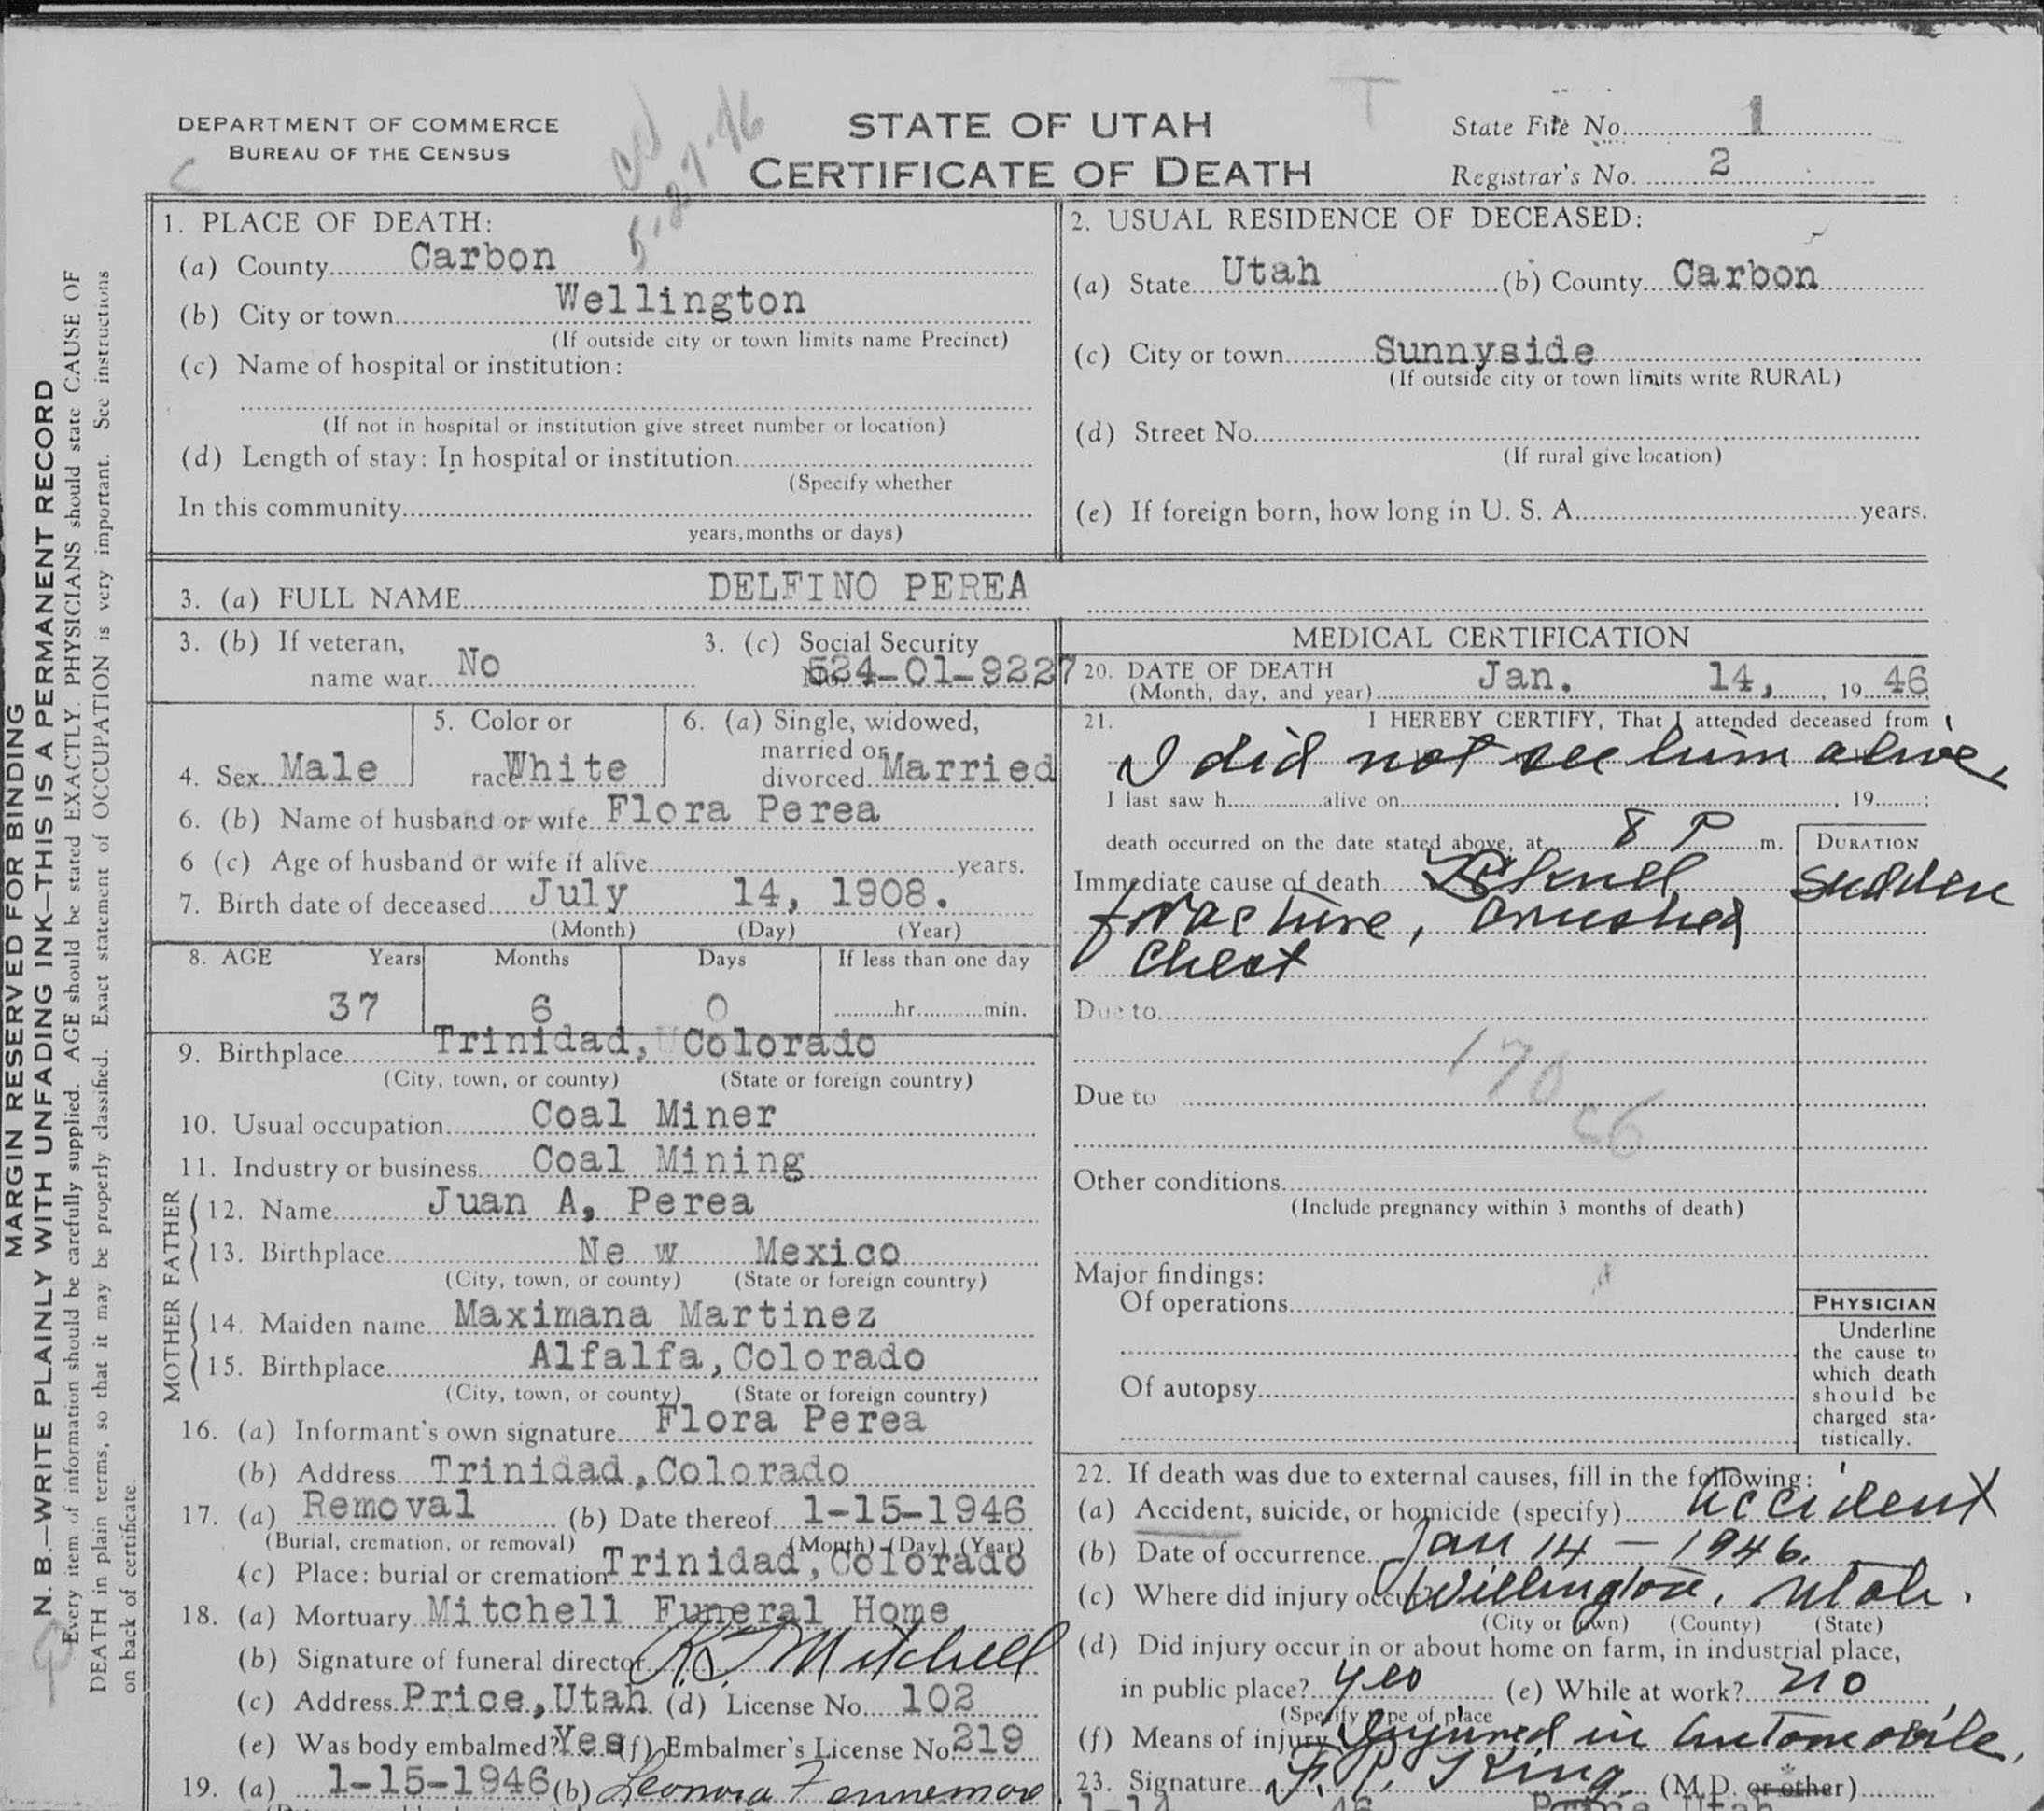 DEPARTMENT OF COMMERCE
BUREAU OF THE CENSUS
STATE OF UTAH
CERTIFICATE OF DEATH
State File No. 1
Registrar's No. 2
5-27-46
MARGIN RESERVED FOR BINDING
N. B.—WRITE PLAINLY WITH UNFADING INK—THIS IS A PERMANENT RECORD
Every item of information should be carefully supplied. AGE should be stated EXACTLY. PHYSICIANS should state CAUSE OF
DEATH in plain terms, so that it may be properly classified. Exact statement of OCCUPATION is very important. See instructions
on back of certificate.
1. PLACE OF DEATH:
(a) County Carbon
(b) City or town Wellington
(If outside city or town limits name Precinct)
(c) Name of hospital or institution:
(If not in hospital or institution give street number or location)
(d) Length of stay: In hospital or institution
(Specify whether
In this community
years, months or days)
2. USUAL RESIDENCE OF DECEASED:
(a) State Utah (b) County Carbon
(c) City or town Sunnyside
(If outside city or town limits write RURAL)
(d) Street No.
(If rural give location)
(e) If foreign born, how long in U. S. A. years.
3. (a) FULL NAME DELFINO PEREA
3. (b) If veteran, name war No
3. (c) Social Security No. 524-01-9227
4. Sex Male
5. Color or race White
6. (a) Single, widowed, married or divorced Married
6. (b) Name of husband or wife Flora Perea
6 (c) Age of husband or wife if alive years.
7. Birth date of deceased July 14, 1908.
(Month) (Day) (Year)
8. AGE Years Months Days If less than one day
37 6 0 hr. min.
9. Birthplace Trinidad, Colorado
(City, town, or county) (State or foreign country)
10. Usual occupation Coal Miner
11. Industry or business Coal Mining
FATHER
12. Name Juan A, Perea
13. Birthplace Ne w Mexico
(City, town, or county) (State or foreign country)
MOTHER
14. Maiden name Maximana Martinez
15. Birthplace Alfalfa, Colorado
(City, town, or county) (State or foreign country)
16. (a) Informant's own signature Flora Perea
(b) Address Trinidad, Colorado
17. (a) Removal (b) Date thereof 1-15-1946
(Burial, cremation, or removal) (Month) (Day) (Year)
(c) Place: burial or cremation Trinidad, Colorado
18. (a) Mortuary Mitchell Funeral Home
(b) Signature of funeral director Mitchell
(c) Address Price, Utah (d) License No. 102
(e) Was body embalmed? Yes (f) Embalmer's License No. 219
19. (a) 1-15-1946 (b) Leonora Fennemore
MEDICAL CERTIFICATION
20. DATE OF DEATH Jan. 14, 19 46
(Month, day, and year)
21. I HEREBY CERTIFY, That I attended deceased from
I did not see him alive
I last saw h alive on , 19 ;
death occurred on the date stated above, at 8 P m.
DURATION
Immediate cause of death Skull sudden
fracture, crushed
chest
Due to
170
c6
Due to
Other conditions
(Include pregnancy within 3 months of death)
Major findings:
Of operations
Of autopsy
PHYSICIAN
Underline
the cause to
which death
should be
charged sta-
tistically.
22. If death was due to external causes, fill in the following:
(a) Accident, suicide, or homicide (specify) accident
(b) Date of occurrence Jan 14 — 1946.
(c) Where did injury occur? Willington, Utah.
(City or town) (County) (State)
(d) Did injury occur in or about home on farm, in industrial place,
in public place? yes (e) While at work? no
(Specify type of place
(f) Means of injury Injured in Automobile.
23. Signature F. R. King (M.D. or other)
1-14 46 Price Utah